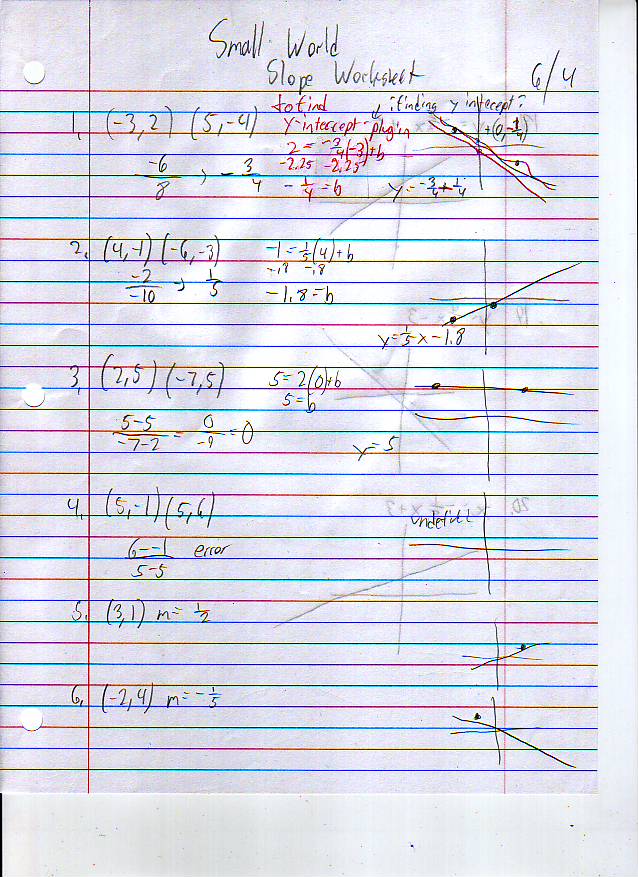 Small World
Slope Worksheet
6/4
1. (-3,2) (5,-4)
-6/8 → -3/4
to find y-intercept → plug in
: finding y intercept:
2 = -3/4(-3)+b
-2.25 -2.25
-1/4 = b
+(0,-1/4)
y=-3/4+1/4
2. (4,-1) (-6,-3)
-2/-10 → 1/5
-1=1/5(4)+b
-.8 -.8
-1.8=b
y=1/5x-1.8
3. (2,5) (-7,5)
5-5/-7-2 = 0/-9 = 0
5=2(0)+b
5=b
y=5
4. (5,-1) (5,6)
6--1/5-5 error
5. (3,1) m=1/2
6. (-2,4) m=-1/5